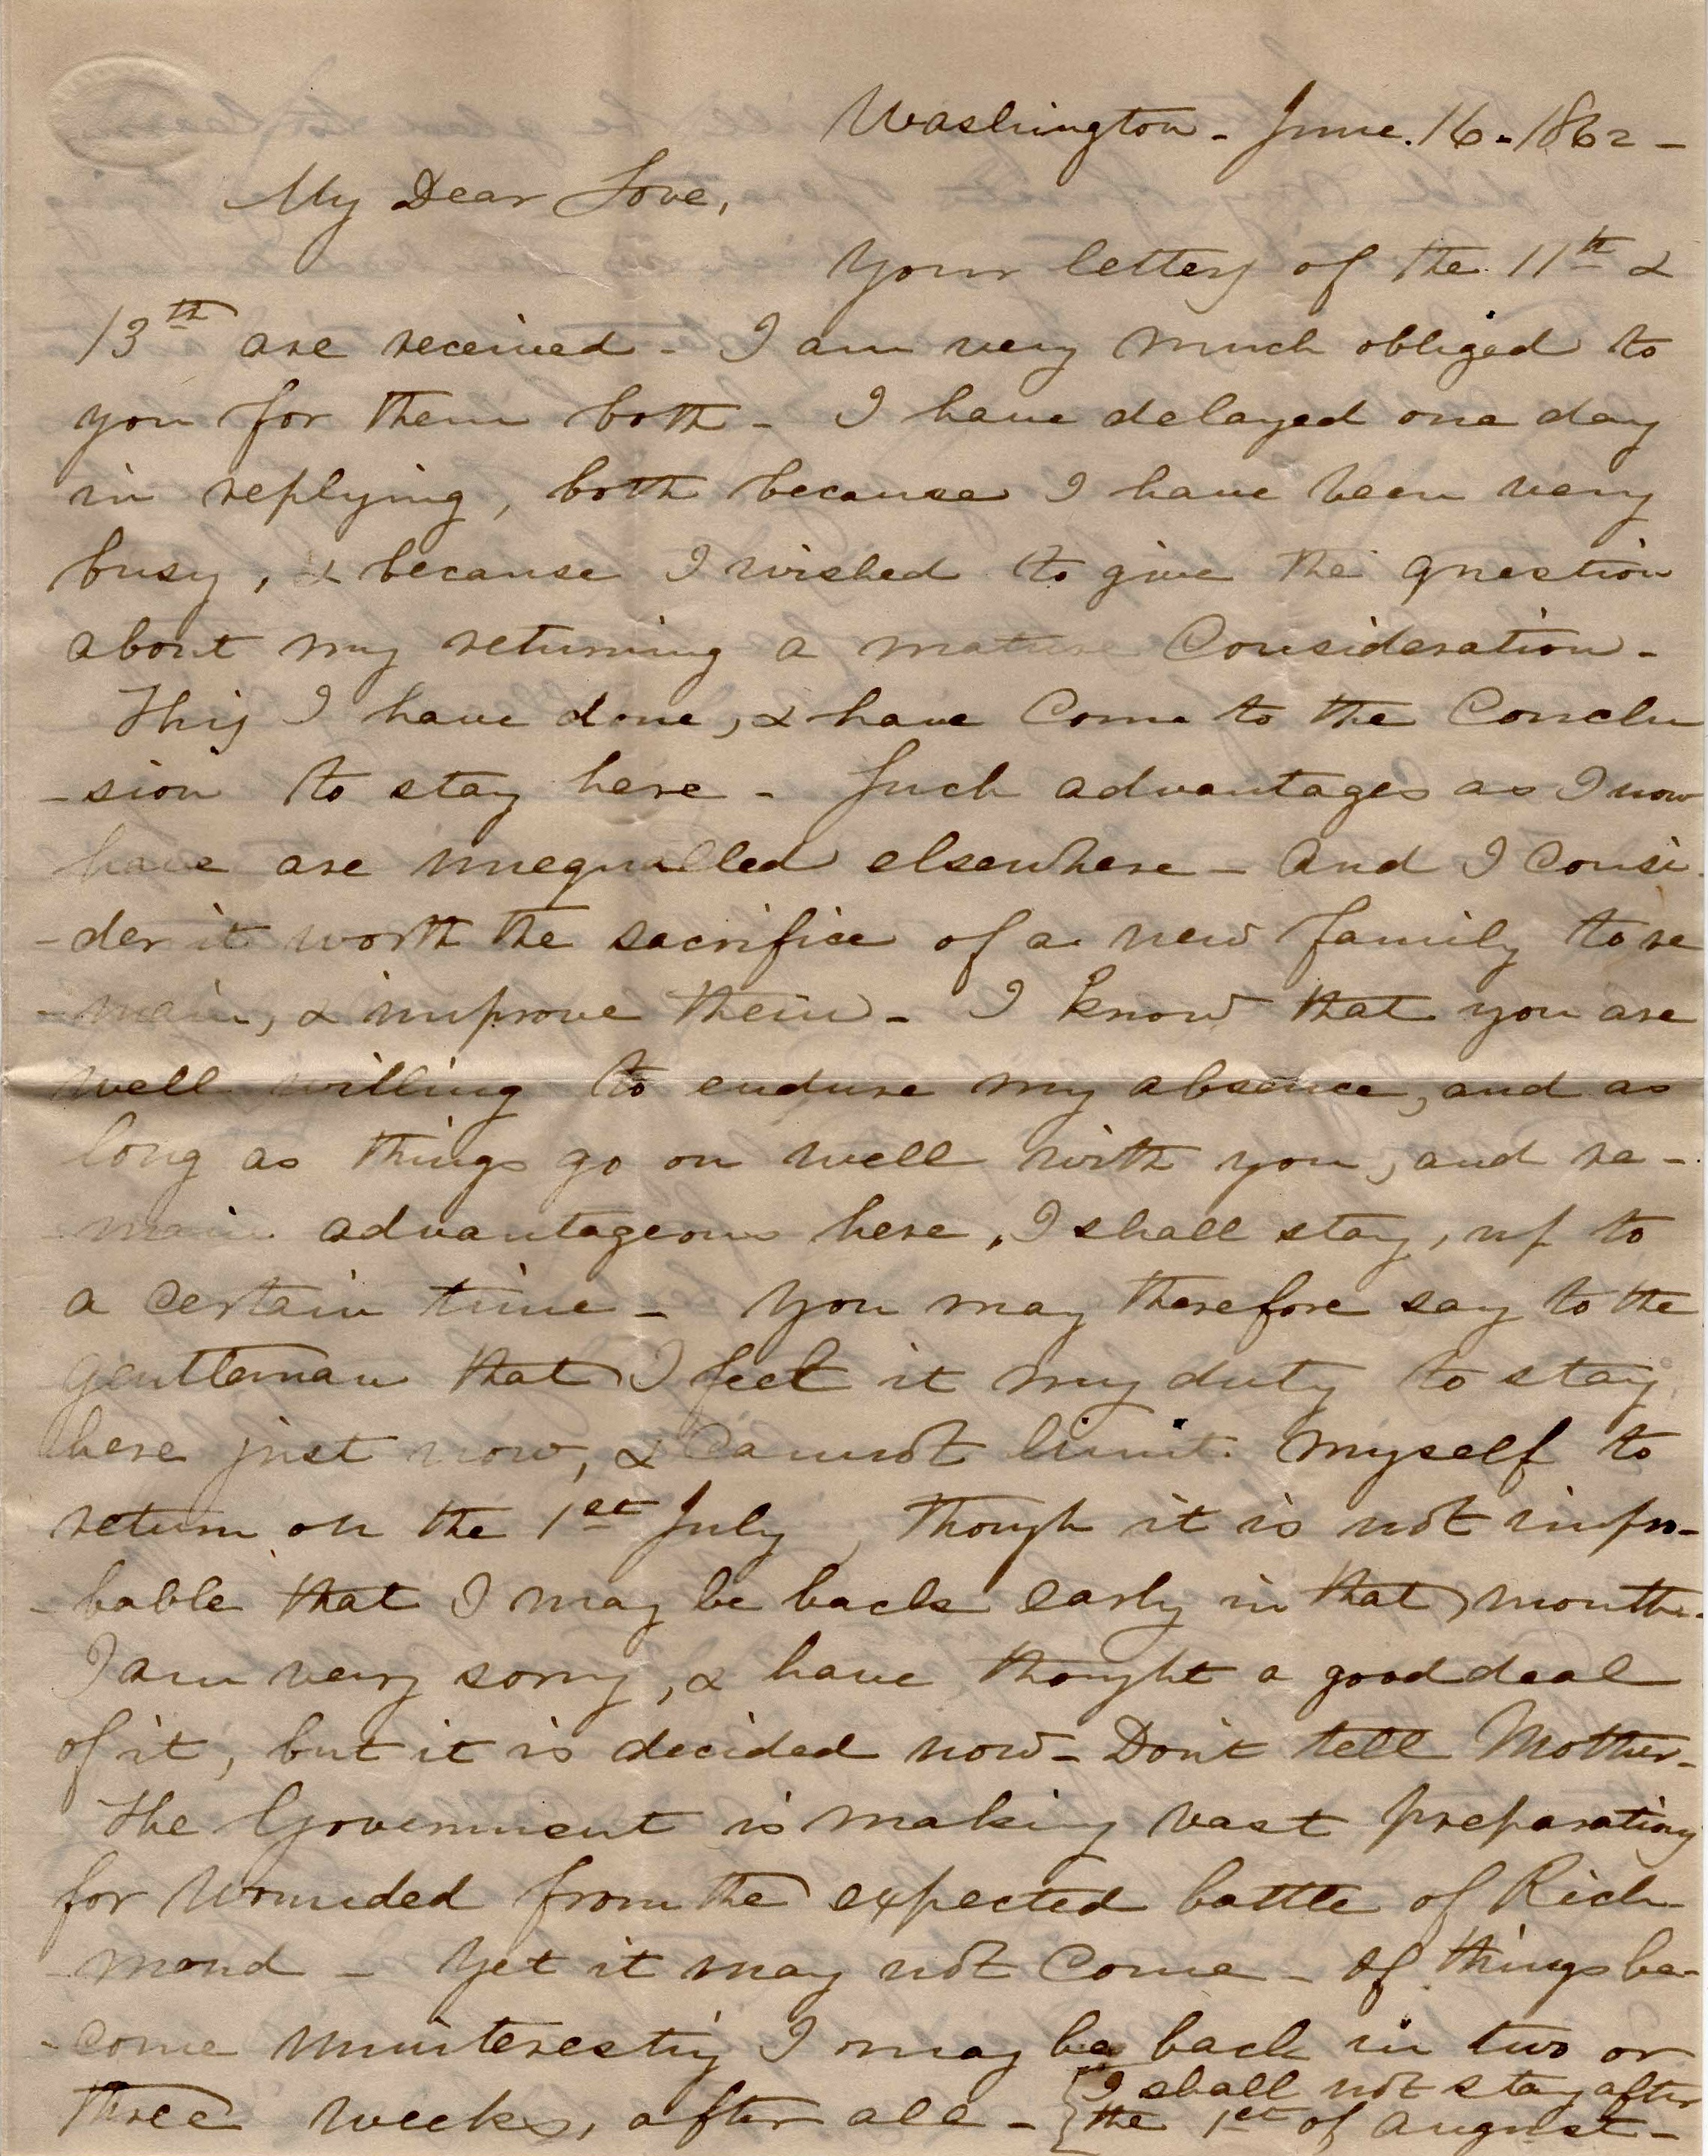 Washington - June. 16 - 1862 -
My Dear Love,
Your letters of the 11th &
13th are received - I am very much obliged to
you for them both - I have delayed one day
in replying, both because I have been very
busy, & because I wished to give the question
about my returning a mature Consideration -
This I have done, & have Come to the Conclu
-sion to stay here - Such advantages as I now
have are unequalled elsewhere - and I Consi-
-der it worth the sacrifice of a new family to re
-main, & improve them - I know that you are
well willing to endure my absence, and as
long as things go on well with you, and re-
main advantageous here, I shall stay, up to
a Certain time - You may therefore say to the
gentleman that I feel it my duty to stay
here just now, & Cannot limit myself to
return on the 1st July, Though it is not impro-
-bable that I may be back early in that month -
I am very sorry, & have thought a good deal
of it, but it is decided now - Don't tell Mother -
The Government is making vast preparations
for wounded from the expected battle of Rich-
-mond - Yet it may not Come - If things be-
-come uninteresting I may be back in two or
three weeks, after all - {I shall not stay after
{the 1st of August -